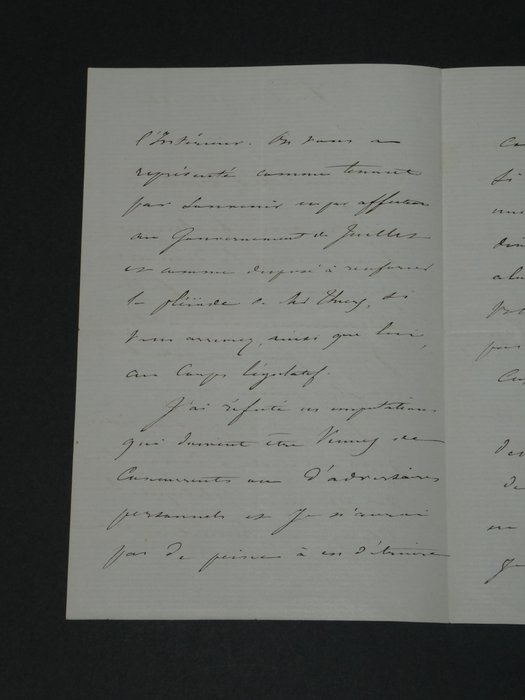 l'Intérieur. On vous a
représenté comme tenant
par souvenir ou par affection
au Gouvernement de Juillet
et comme disposé à renforcer
la pléiade de Mr Thiers, si
vous arriviez, ainsi que lui,
au Corps législatif.
J'ai réfuté ces imputations
qui doivent être venues de
concurrents ou d'adversaires
personnels et je n'aurai
pas de peine à en détruire